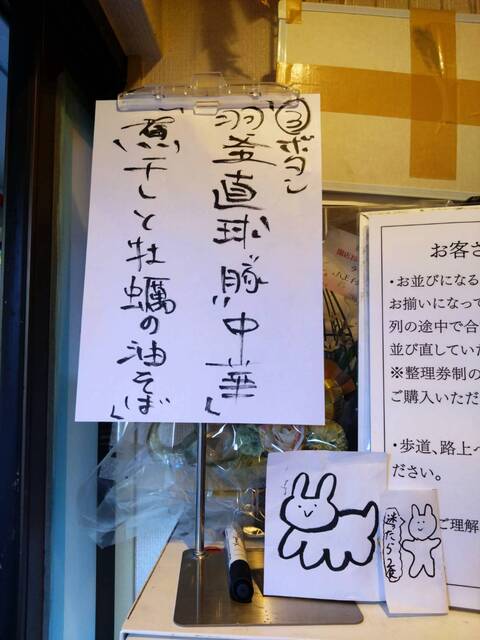 ③ボタン
「羽釜直球"豚"中華」
「煮干しと牡蠣の油そば」
お客さ
・お並びになる
お揃いになって
列の途中で合
並び直してい
※整理券制の
ご購入いただ
・歩道、路上へ
ださい。
ご理解
迷ったら2度